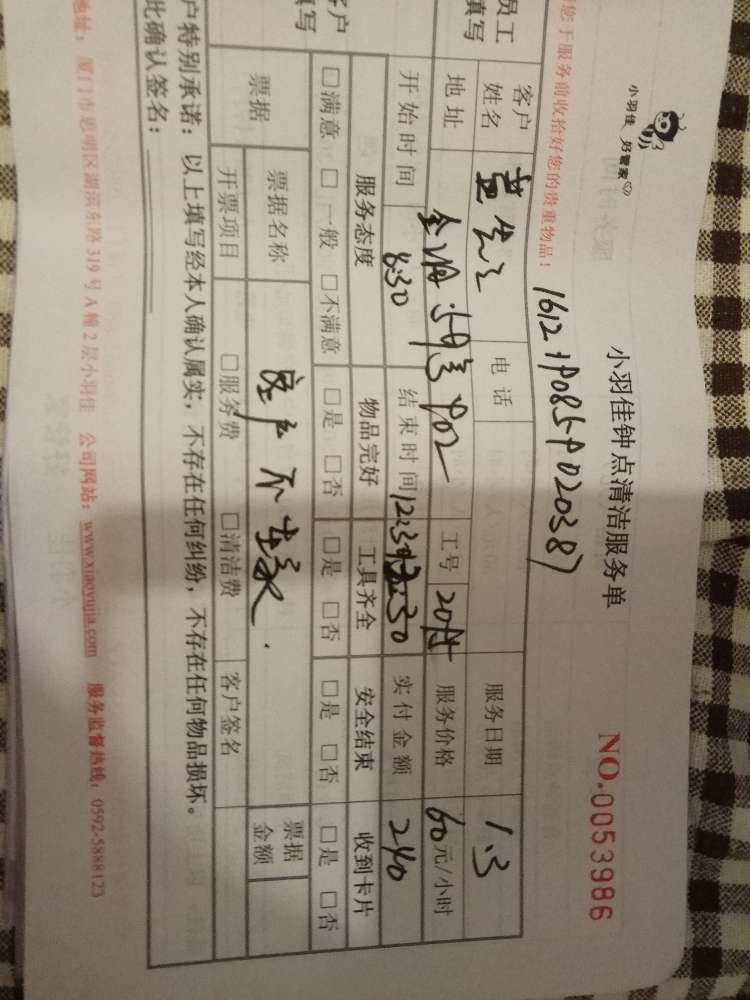 小羽佳 好管家
小羽佳钟点清洁服务单
NO.0053986
您于服务前收拾好您的贵重物品！
员工
填写
客户
姓名
电话
服务日期
1.3
地址
工号
服务价格
60元/小时
开始时间
8:30
结束时间
实付金额
240
客户
填写
服务态度
物品完好
工具齐全
安全结束
收到卡片
□满意 □一般 □不满意
□是 □否
□是 □否
□是 □否
□是 □否
票据
票据名称
客户不在家.
票据
金额
开票项目
□服务费 □清洁费
客户签名
户特别承诺：以上填写经本人确认属实，不存在任何纠纷，不存在任何物品损坏。
此确认签名：
地址：厦门市思明区湖滨东路319号A幢2层小羽佳 公司网站：www.xiaoyujia.com 服务监督热线：0592-5888123